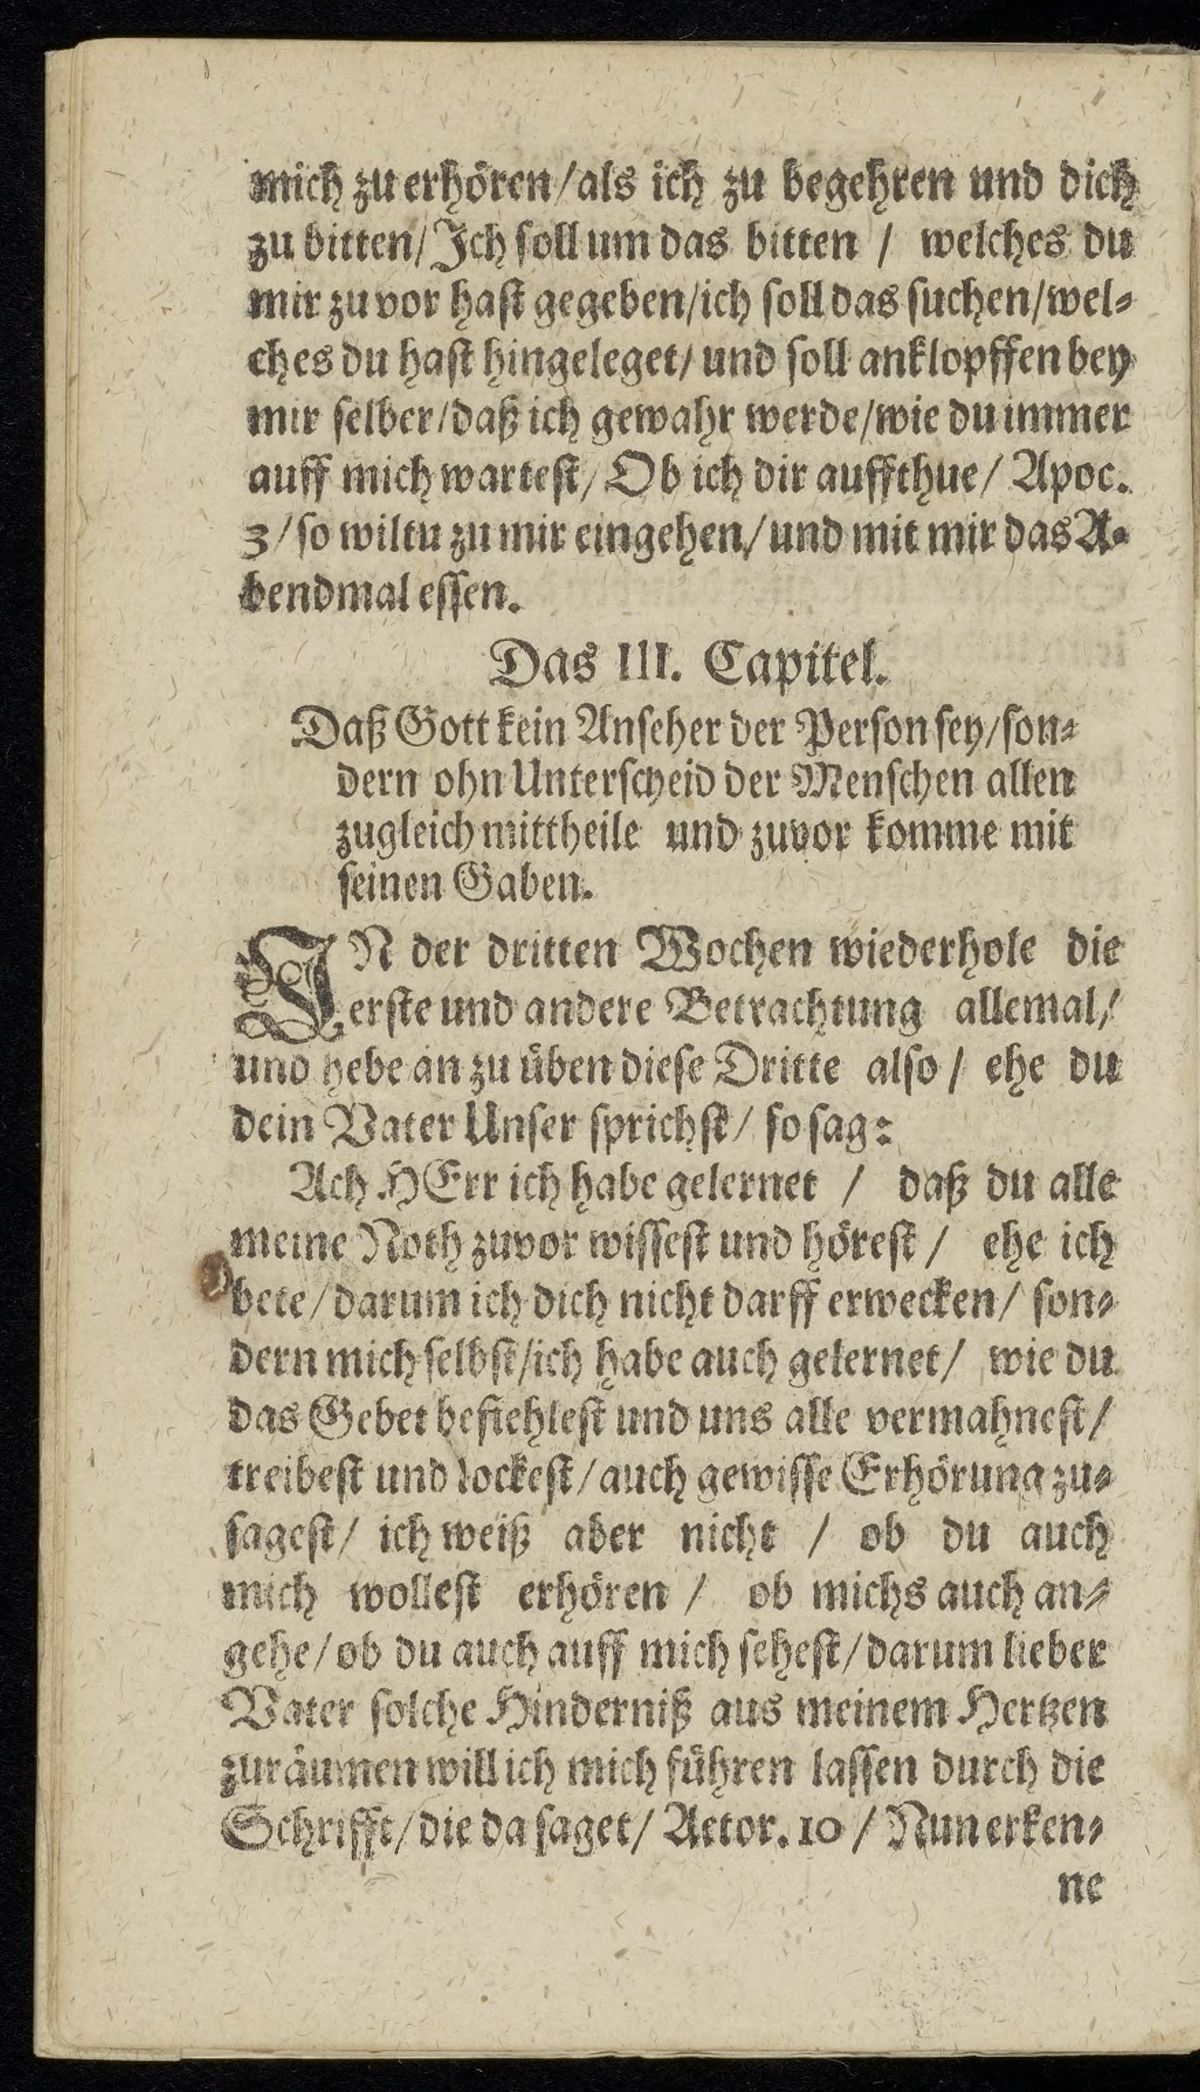 mich zu erhören/als ich zu begehren und dich
zu bitten/Ich soll um das bitten / welches du
mir zuvor hast gegeben/ich soll das suchen/wel-
ches du hast hingeleget/ und soll anklopffen bey
mir selber/daß ich gewahr werde/wie du immer
auff mich wartest/ Ob ich dir auffthue/ Apoc.
3/ so wiltu zu mir eingehen/und mit mir das A-
bendmal essen.
Das III. Capitel.
Daß Gott kein Anseher der Person sey/son-
dern ohn Unterscheid der Menschen allen
zugleich mittheile und zuvor komme mit
seinen Gaben.
IN der dritten Wochen wiederhole die
erste und andere Betrachtung allemal/
und hebe an zu üben diese Dritte also / ehe du
dein Vater Unser sprichst/ so sag:
Ach HErr ich habe gelernet / daß du alle
meine Noth zuvor wissest und hörest / ehe ich
bete/darum ich dich nicht darff erwecken/ son-
dern mich selbst/ich habe auch gelernet/ wie du
das Gebet befiehlest und uns alle vermahnest/
treibest und lockest/auch gewisse Erhörung zu-
sagest/ ich weiß aber nicht / ob du auch
mich wollest erhören / ob michs auch an-
gehe/ob du auch auff mich sehest/darum lieber
Vater solche Hinderniß aus meinem Hertzen
zuräumen will ich mich führen lassen durch die
Schrifft/die da saget/ Actor. 10 / Nun erken-
ne